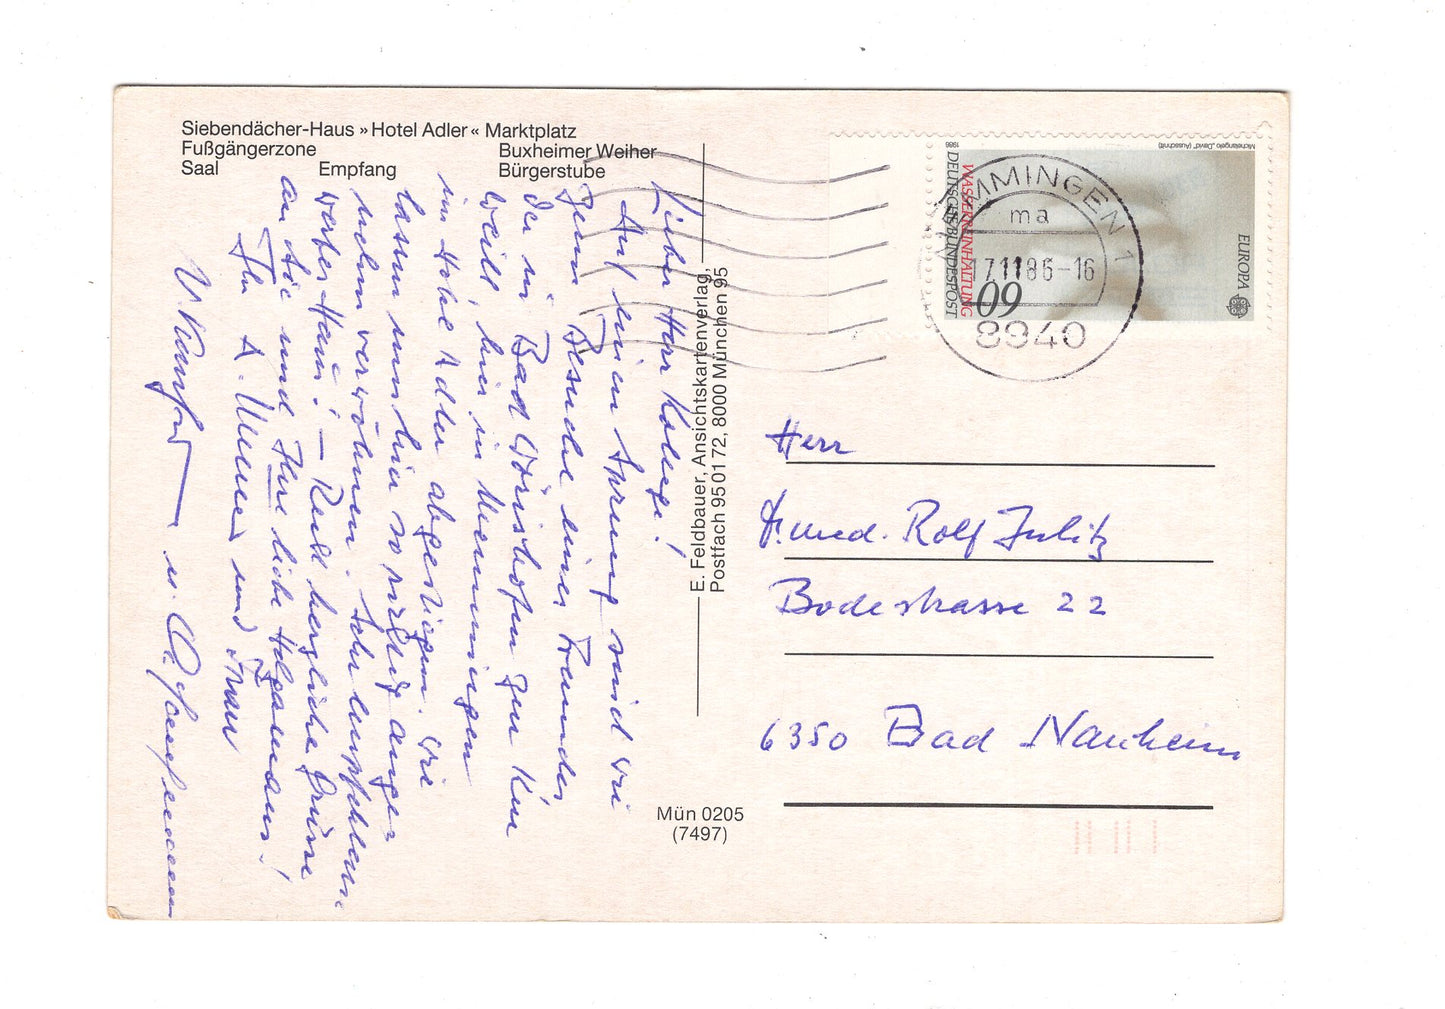 Siebendächer-Haus » Hotel Adler « Marktplatz
Fußgängerzone Buxheimer Weiher
Saal Empfang Bürgerstube
Lieber Herr Kollege!
Auf einen Sprung sind wir
zum Besuche eines Freundes
der in Bad Wörishofen zur Kur
weilt, hier in Memmingen
im Hotel Adler abgestiegen. Wir
lassen uns hier so richtig ange-
nehm verwöhnen. Sehr empfehlens-
wertes Haus! – Recht herzliche Grüsse
an Sie und Ihre liebe
Ihr A. und Frau
u.
E. Feldbauer, Ansichtskartenverlag,
Postfach 95 01 72, 8000 München 95
Mün 0205
(7497)
Michelangelo „David“ (Ausschnitt)
1986
DEUTSCHE BUNDESPOST
WASSERREINHALTUNG
60
EUROPA
CEPT
MEMMINGEN 1
ma
17.11.86-16
8940
Herr
Dr. med. Rolf Julitz
Bodestrasse 22
6350 Bad Nauheim